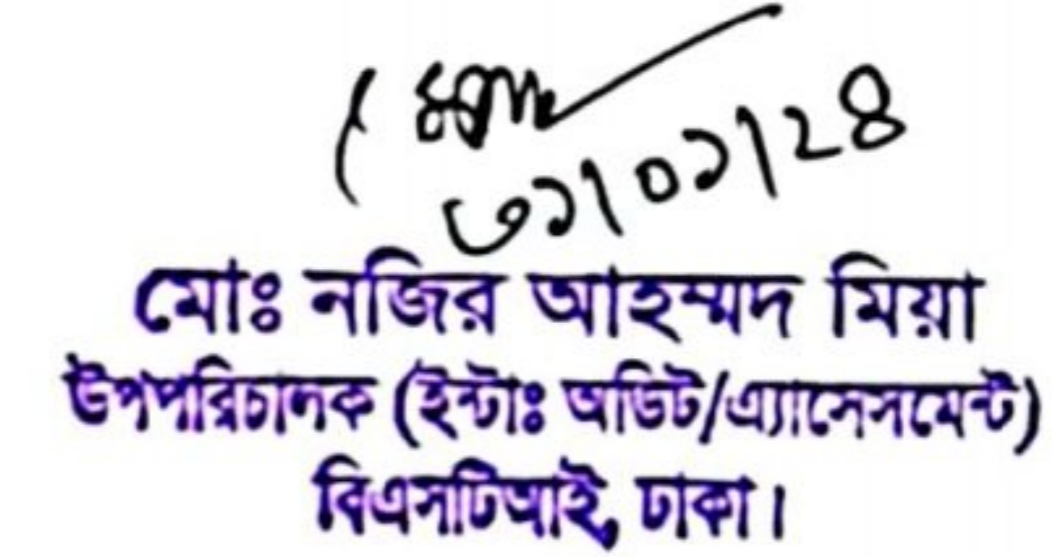 ৩১/০১/২৪
মোঃ নজির আহম্মদ মিয়া
উপপরিচালক (ইন্টাঃ অডিট/এ্যাসেসমেন্ট)
বিএসটিআই, ঢাকা।